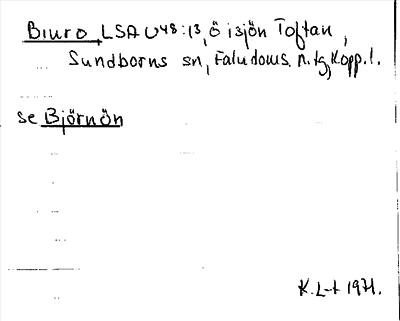 Biuro, LSA U48:13, ö i sjön Toftan,
Sundborns sn, Faludoms n. tg, Kopp. l.
se Björnön
K. L-t 1971.